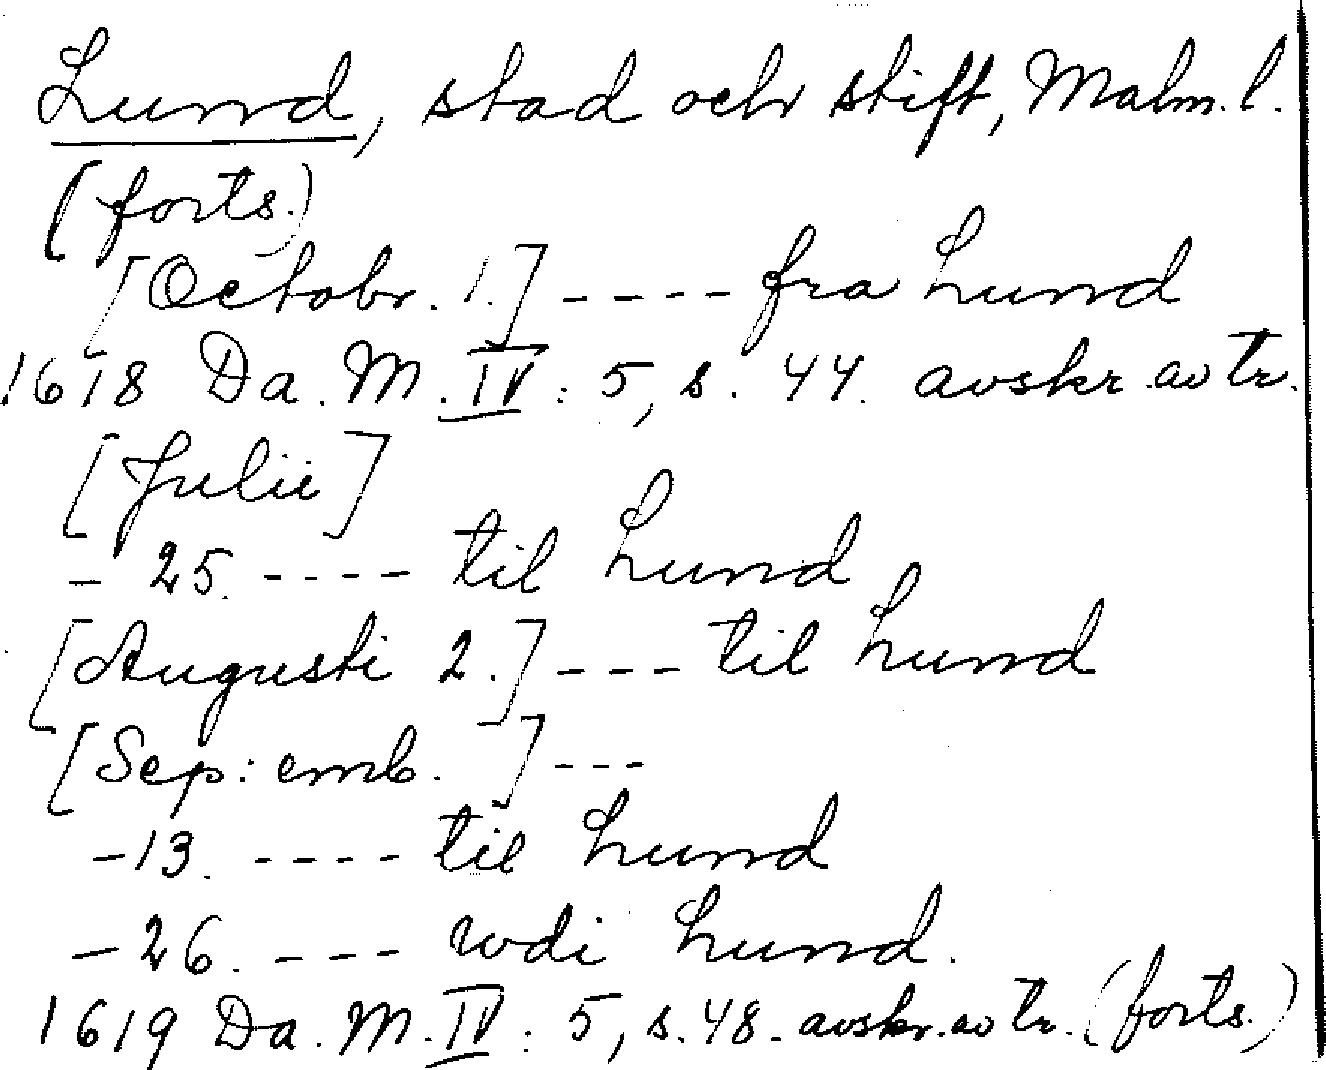 Lund, stad och stift, Malm. l.
(forts.)
[Octobr. 1.] ---- fra Lund
1618 Da. M. IV: 5, s. 44. avskr. av tr.
[Julii]
- 25. ---- til Lund
[Augusti 2.] --- til Lund
[Sep: emb. ] ---
- 13. ---- til Lund
- 26. --- wdi Lund.
1619 Da. M. IV: 5, s. 48. avskr. av tr. (forts.)